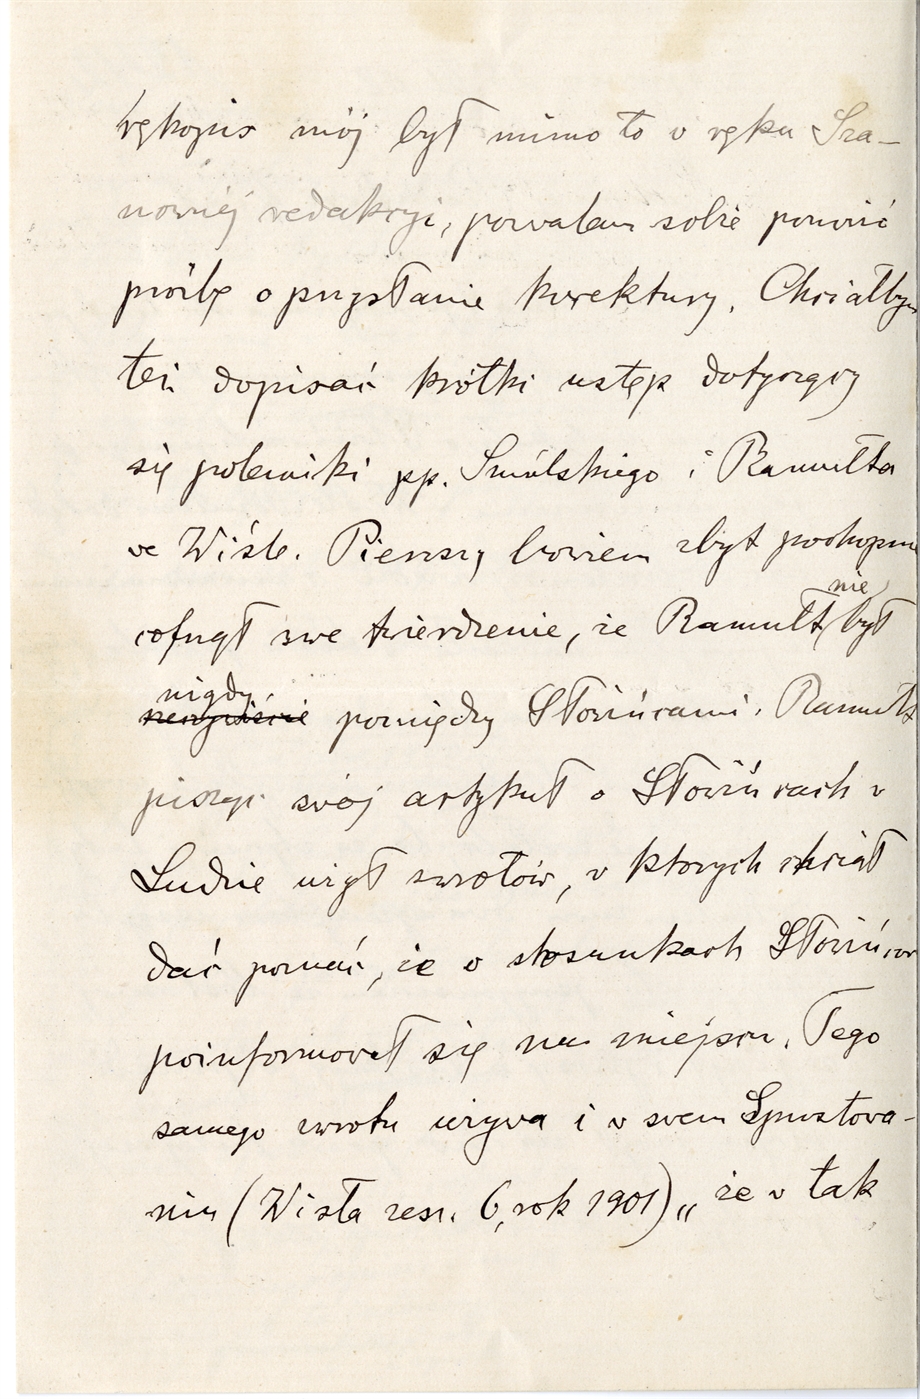 rękopis mój był mimo to w ręku Sza-
nownéj redakcyi, pozwalam sobie ponowić
próźbę o przysłanie korektury. Chciałbym
też dopisać krótki ustęp dotyczący
się polemiki pp. Smólskiego i Ramułta
we Wiśle. Pierwszy bowiem zbyt pochopnie
cofnął swe twierdzenie, że Ramułt nie był
nigdy pomiędzy Słowińcami. Ramułt
pisząc swój artykuł o Słowińcach w
Ludzie użył zwrotów, w ktorych chciał
dać poznać, że o stosunkach Słowińców
poinformował się na miejscu. Tego
samego zwrotu używa i w swem Sprostowa-
niu (Wisła zesz. 6, rok 1901) „że w tak